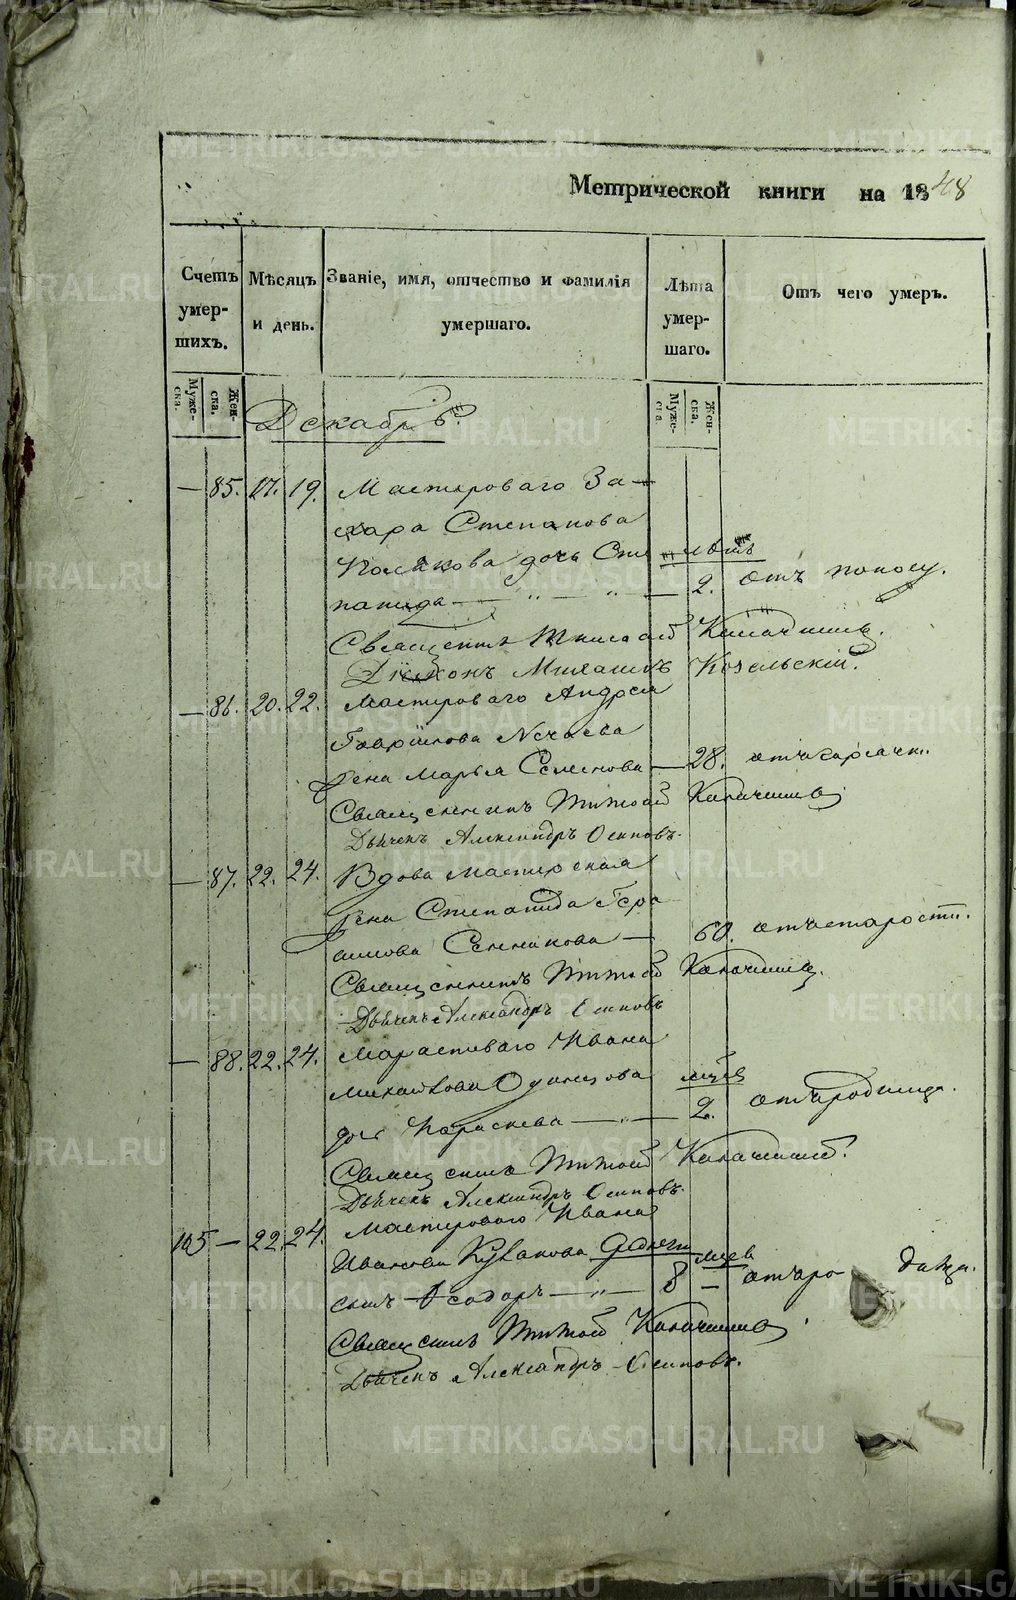 METRIKI.GASO-URAL.RU
Метрической книги на 1848
Счетъ умер- шихъ.
Мѣсяцъ и день.
Званіе, имя, отчество и фамилія умершаго.
Лѣта умер- шаго.
Отъ чего умеръ.
Муже- ска.
Жен- ска.
Муже- ска.
Жен- ска.
Декабрь.
— 85. 17. 19. Мастероваго За-
хара Степанова
Полякова дочь Сте лѣтъ
панида — „ — „ — 2. отъ поносу.
Священникъ Калачниковъ.
Діаконъ Михаилъ Козельскій.
— 86. 20. 22. Мастероваго Андрея
Гаврилова Нечаева
жена Марья Семенова — 28. отъ горячки.
Священникъ Калачниковъ
Дьячекъ Александръ Осиповъ.
— 87. 22. 24. Вдова мастерская
жена Степанида Гера
симова Санникова — 60. отъ старости.
Священникъ Калачниковъ.
Дьячекъ Александръ Осиповъ
— 88. 22. 24. Мастероваго Ивана
Михайлова Одинцова мцев
дочь Параскева — „ — 2. отъ родимца.
Священникъ Калачниковъ.
Дьячекъ Александръ Осиповъ.
105 — 22. 24. Мастероваго Ивана
Иванова мцев
сынъ Ѳеодоръ — „ — 8 — отъ ро димца.
Священникъ Калачниковъ.
Дьячекъ Александръ Осиповъ.